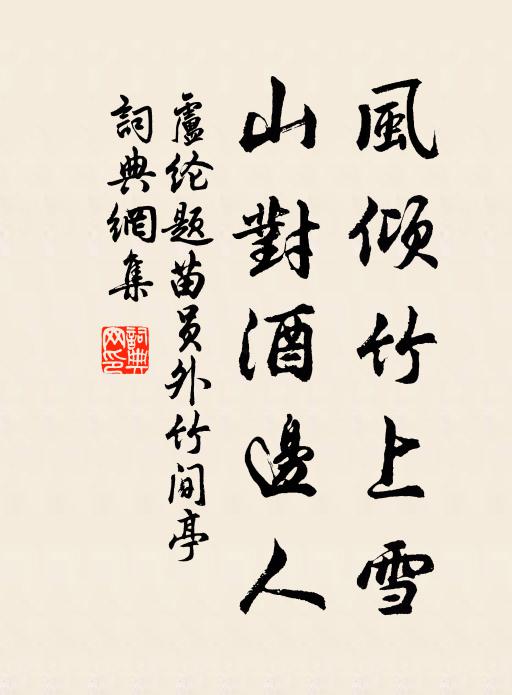 風傾竹上雪
山對酒邊人
盧纶题苗员外竹间亭
詞典網集
詞典
网印